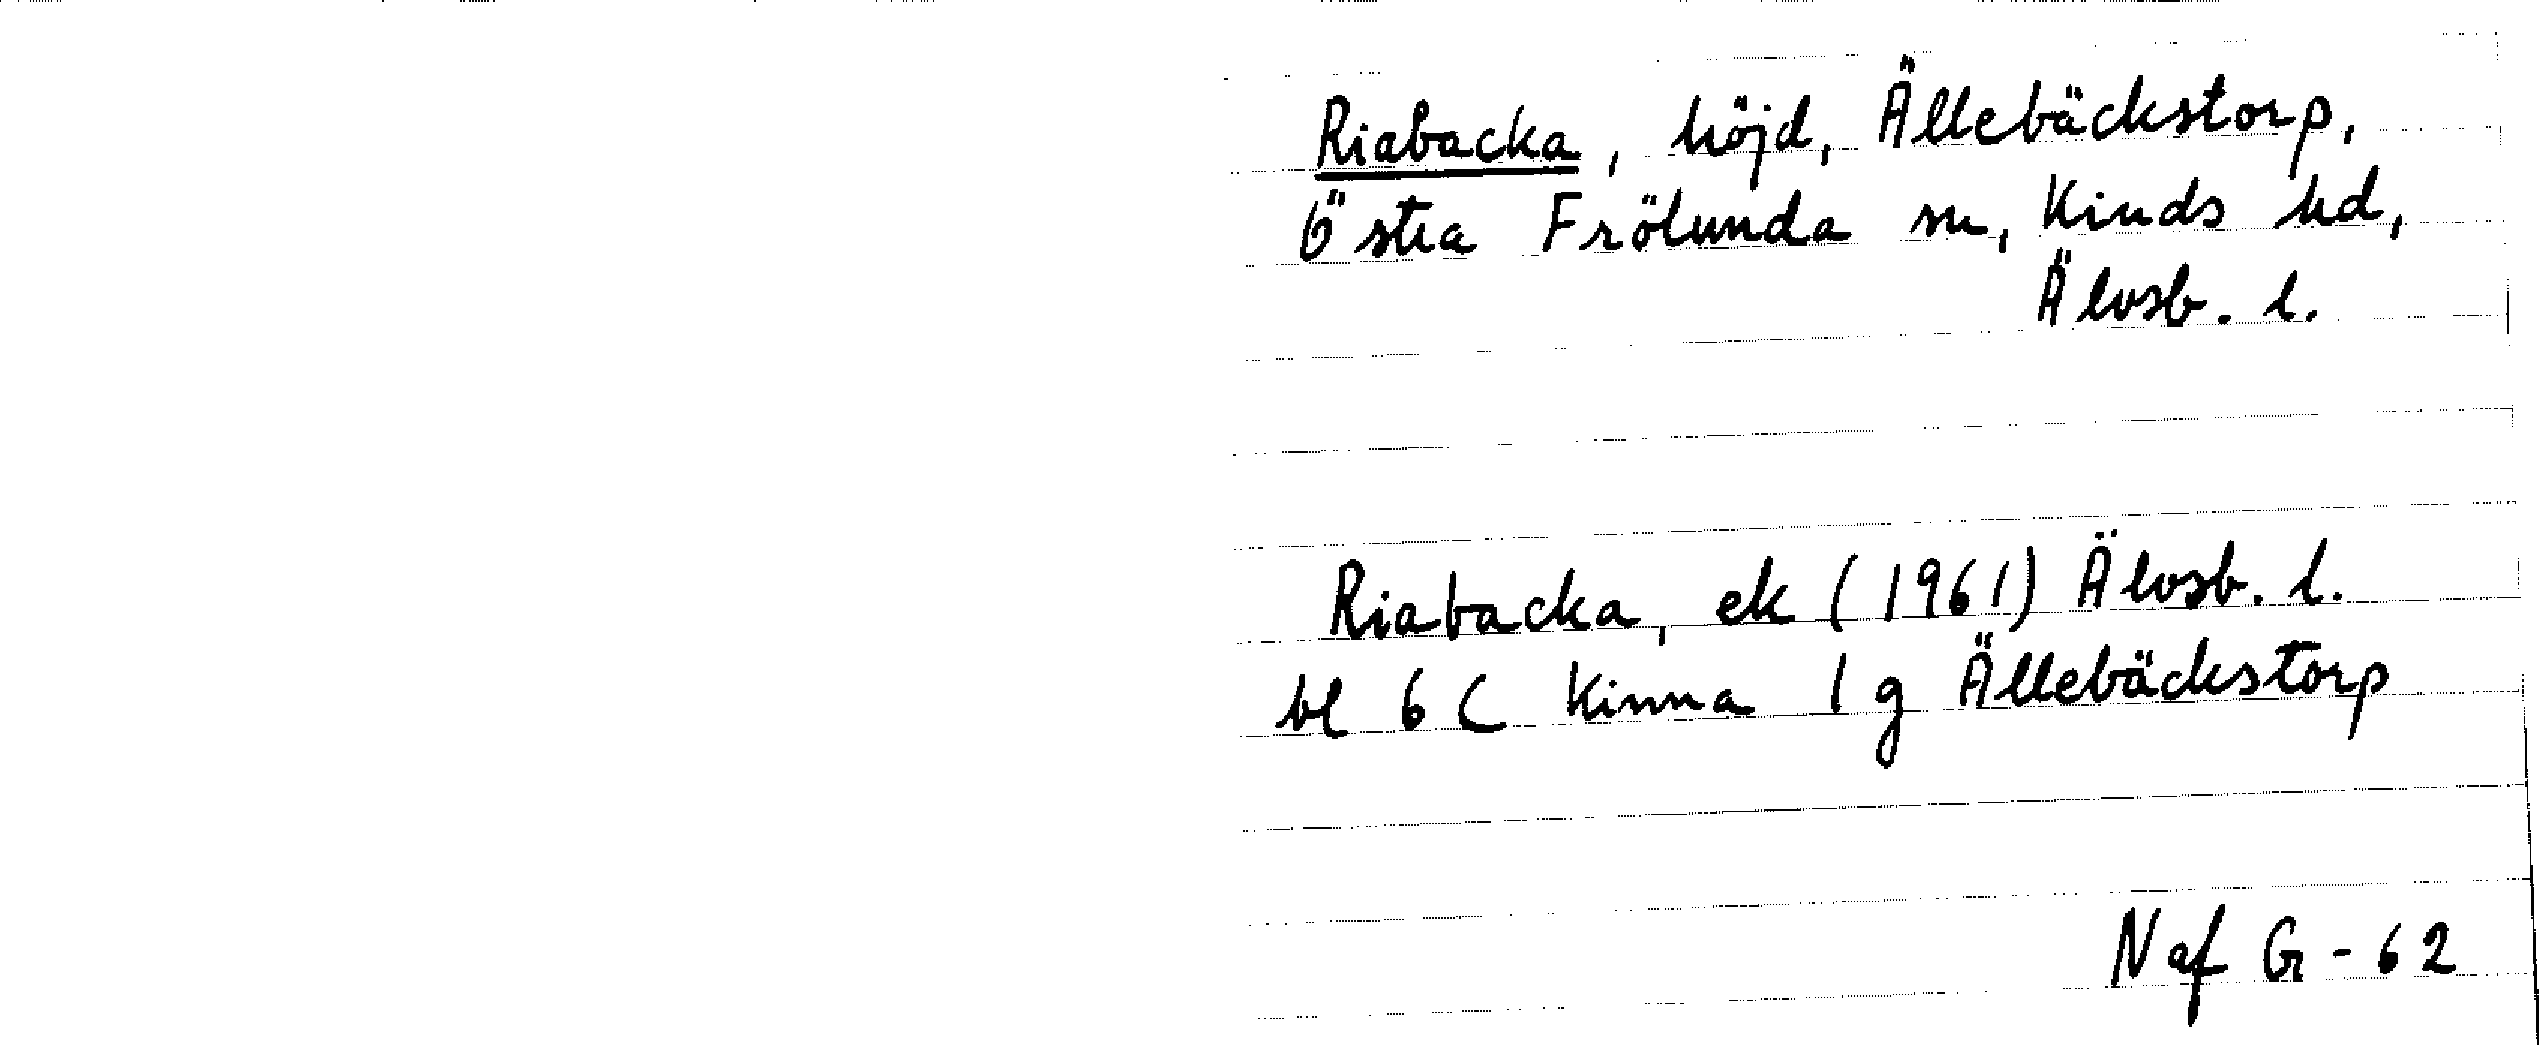 Riabacka, höjd, Ällebäckstorp,
Östra Frölunda sn, Kinds hd,
Älvsb. l.
Riabacka, ek (1961) Älvsb. l.
bl 6 C Kinna 1 g Ällebäckstorp
N af G - 62